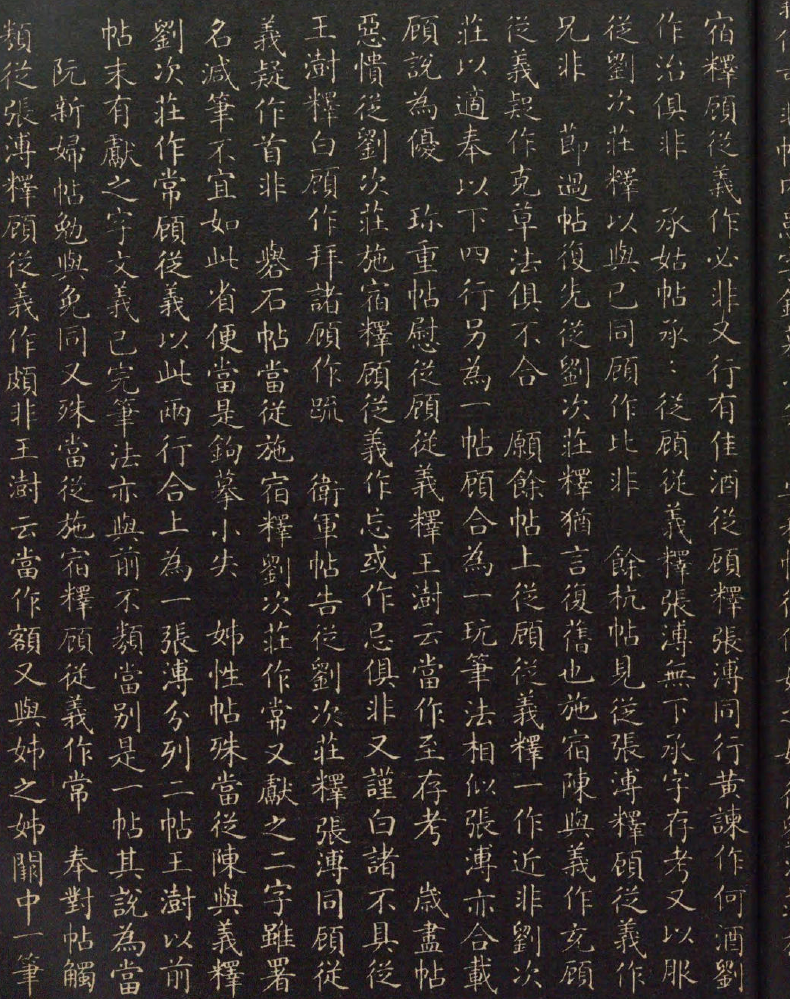 宿釋顧從義作必非又行有佳酒從顧釋張溥同行黃諫作何酒劉
作治俱非　承姑帖承：從顧從義釋張溥無下承字存考又以服
從劉次莊釋以與已同顧作比非　餘杭帖見從張溥釋顧從義作
兄非　節過帖復先從劉次莊釋猶言復舊也施宿陳與義作充顧
從義疑作克草法俱不合　願餘帖上從顧從義釋一作近非劉次
莊以適奉以下四行另為一帖顧合為一玩筆法相似張溥亦合載
顧說為優　珎重帖慰從顧從義釋王澍云當作至存考　歲盡帖
惡憒從劉次莊施宿釋顧從義作忘或作忌俱非又謹白諸不具從
王澍釋白顧作拜諸顧作䟽　衛軍帖告從劉次莊釋張溥同顧從
義疑作首非　礜石帖當從施宿釋劉次莊作常又獻之二字雖署
名減筆不宜如此省便當是鉤摹小失　姊性帖殊當從陳與義釋
劉次莊作常顧從義以此兩行合上為一張溥分列二帖王澍以前
帖末有獻之字文義已完筆法亦與前不類當別是一帖其說為當
阮新婦帖勉與免同又殊當從施宿釋顧從義作常　奉對帖觸
類從張溥釋顧從義作頗非王澍云當作額又與姊之姊闕中一筆